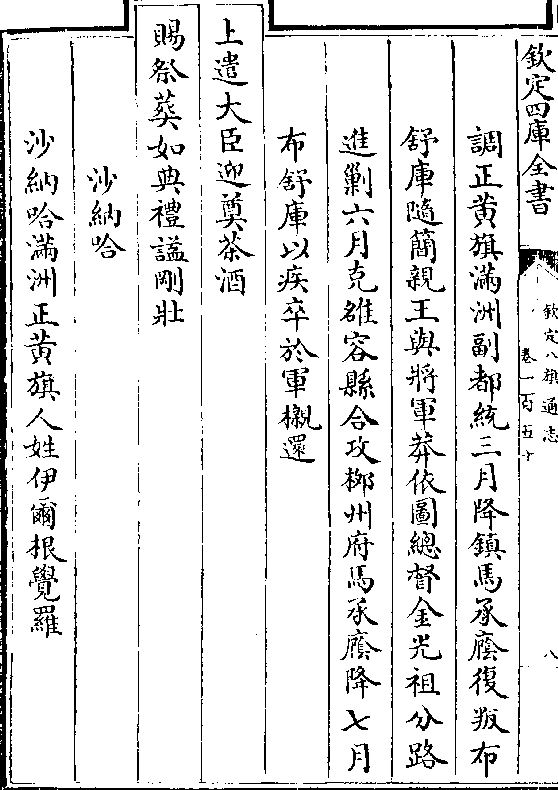 欽定四庫全書
欽定八旗通志
卷一百五十
八
調正黃旗滿洲副都統三月降鎮馬承廕復叛布
舒庫隨簡親王與將軍莽依圖總督金光祖分路
進剿六月克雒容縣合攻桞州府馬承廕降七月
布舒庫以疾卒於軍櫬還
上遣大臣迎奠茶酒
賜祭葬如典禮諡剛壯
沙納哈
沙納哈滿洲正黃旗人姓伊爾根覺羅